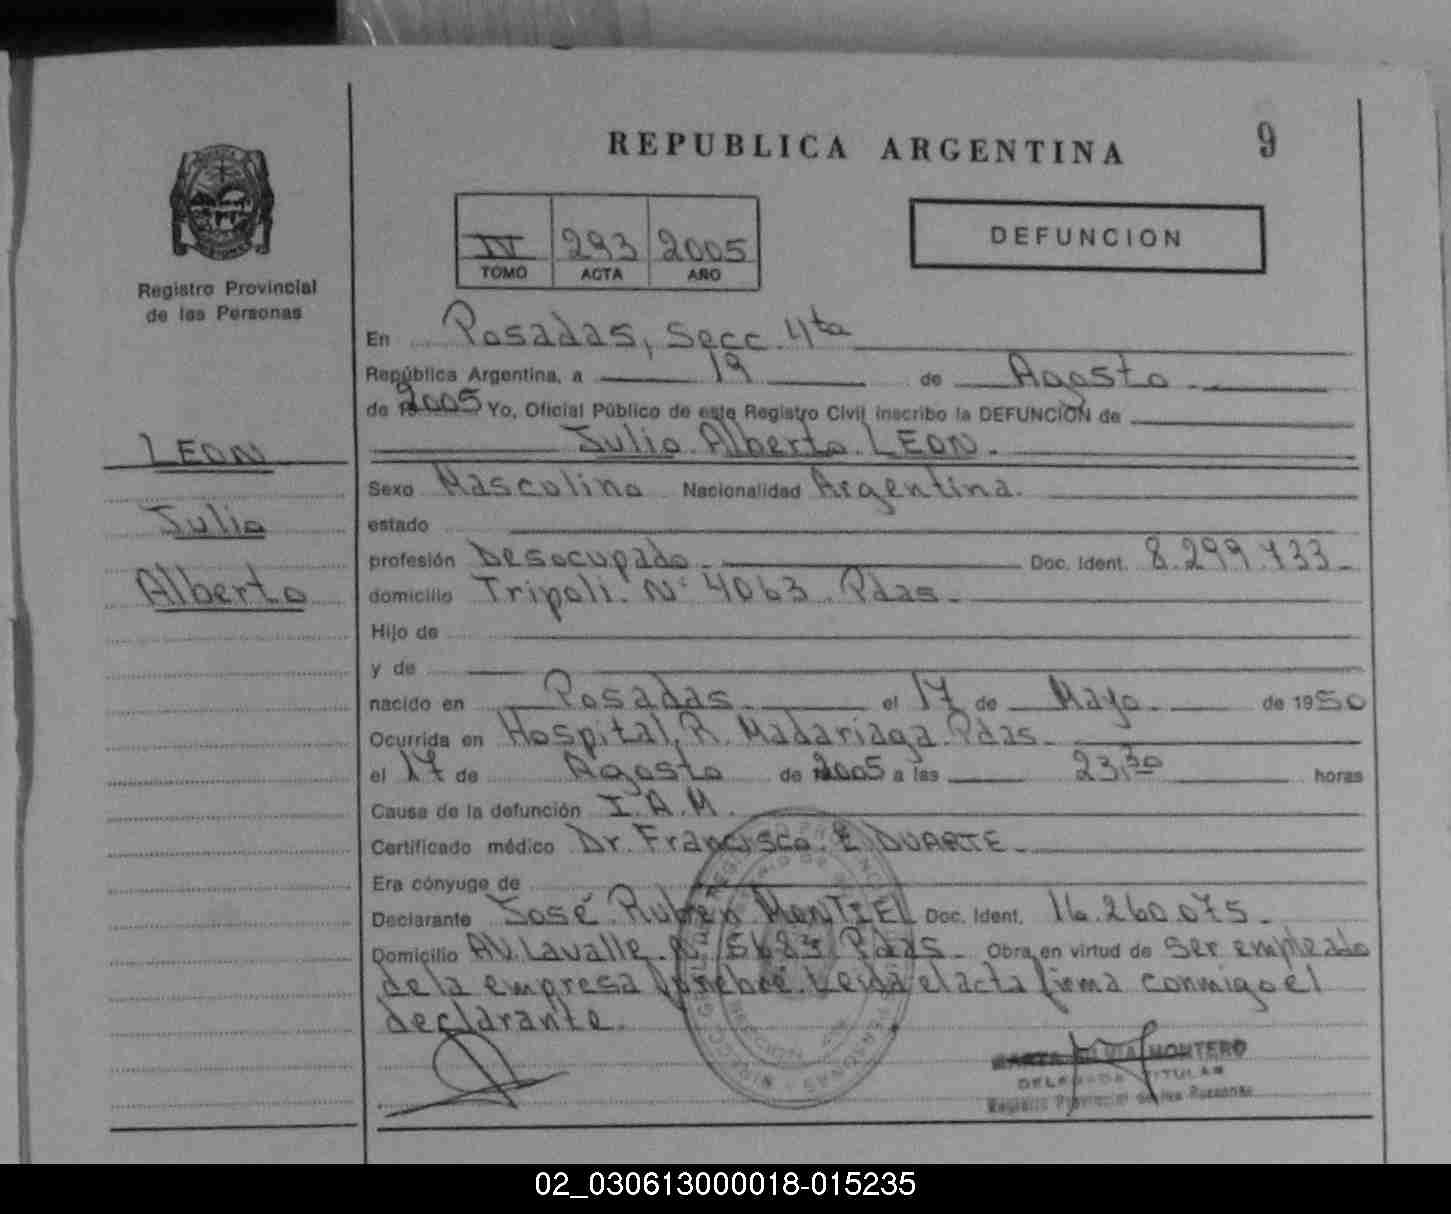 REPUBLICA ARGENTINA
9
IV 293 2005
TOMO ACTA AÑO
DEFUNCION
Registro Provincial
de las Personas
LEON
Julio
Alberto
En Posadas, Secc. 4ta
República Argentina, a 19 de Agosto
de 2005 Yo, Oficial Público de este Registro Civil inscribo la DEFUNCION de
Julio Alberto LEON.
Sexo Masculino Nacionalidad Argentina.
estado
profesión Desocupado. Doc. Ident. 8.299.733
domicilio Tripoli N° 4063 Pdas.
Hijo de
y de
nacido en Posadas. el 17 de Mayo. de 1950
Ocurrida en Hospital R. Madariaga Pdas.
el 17 de Agosto de 2005 a las 23,30 horas
Causa de la defunción I.A.M.
Certificado médico Dr. Francisco E DUARTE
Era cónyuge de
Declarante José Ruben MONTIEL Doc. Ident. 16.260.075.
Domicilio AV. Lavalle 5683 Pdas. Obra en virtud de ser empleado
de la empresa funebre. Leida el acta firma conmigo el
declarante.
SILVIA MONTERO
DELEGADA TITULAR
Registro Provincial de las Personas
02_030613000018-015235